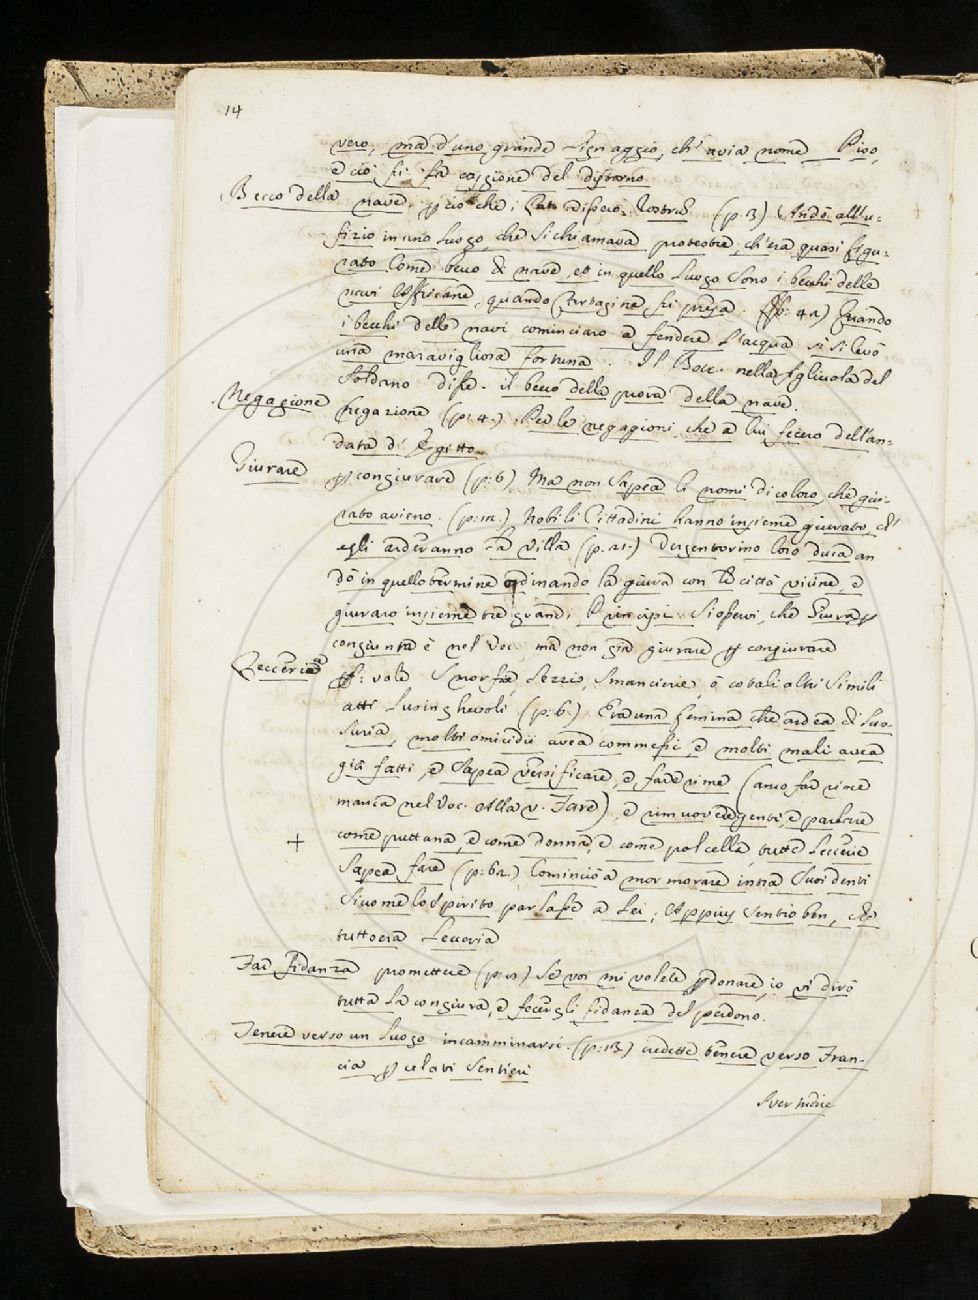 14
vero, ma d'uno grande Lignaggio, ch'avia nome Piso,
e ciò fu la cagione del distorno.
Becco della nave. p ciò che i Lat. dissero Rostrū (p. 3) Andò all'u-
fizio in uno Luogo, che si chiamava proteostre, ch'era quasi figu-
rato come beco di nave, et in quello Luogo sono i becchi delle
navi Affricane, quando Cartagine fu presa. (p: 42) Quando
i becchi delle navi cominciaro a fendere l'acqua si si levò
una maravigliosa fortuna. Il Bocc. nella figliuola del
Soldano disse. il beco della prora della nave.
Negagione Negazione (p: 4.) Per le negagioni che a lui fecero dell'an-
data d'Egitto
Giurare p congiurare (p: 6) Ma non sapea li nomi di coloro, che giu-
rato avieno. (p: 12.) Nobili Cittadini hanno insieme giurato, ch'
egli arderanno la Villa (p. 21.) Dugentorino loro duca an
dò in quello termine ordinando la guerra con le città vicine, e
giuraro insieme tre grandi Principi. Si osservi, che Giura p
congiunta è nel Voc. ma non già giurare p congiurare
Lecceria : vale Smorfia, Lezzio, Smancerie, ò cotali altri simili
atti Lusinghevoli (p: 6.) Era una femina che ardea di Lus-
suria, molti omicidii avea commessi e molti mali avea
già fatti, e sapea versificare, e fare rime (anco far rime
manca nel Voc. alla v. Fare), e rimuovere genti, e parlare
come puttana, e come donna, e come polcella, tutte Leccerie
+ sapea fare (p: 62.) Cominciò a mormorare intra suoi denti
sicome lo Spirito parlasse a Lei; Appius sentio ben, che
tutto era Lecceria
Far fidanza promettere (p: 12) Se voi mi volete pdonare, io vi dirò
tutta la congiura, e fecergli fidanza del perdono.
Tenere verso un Luogo incamminarsi. (p: 13) credette tenere verso Fran-
cia p celati Sentieri
Svertudire